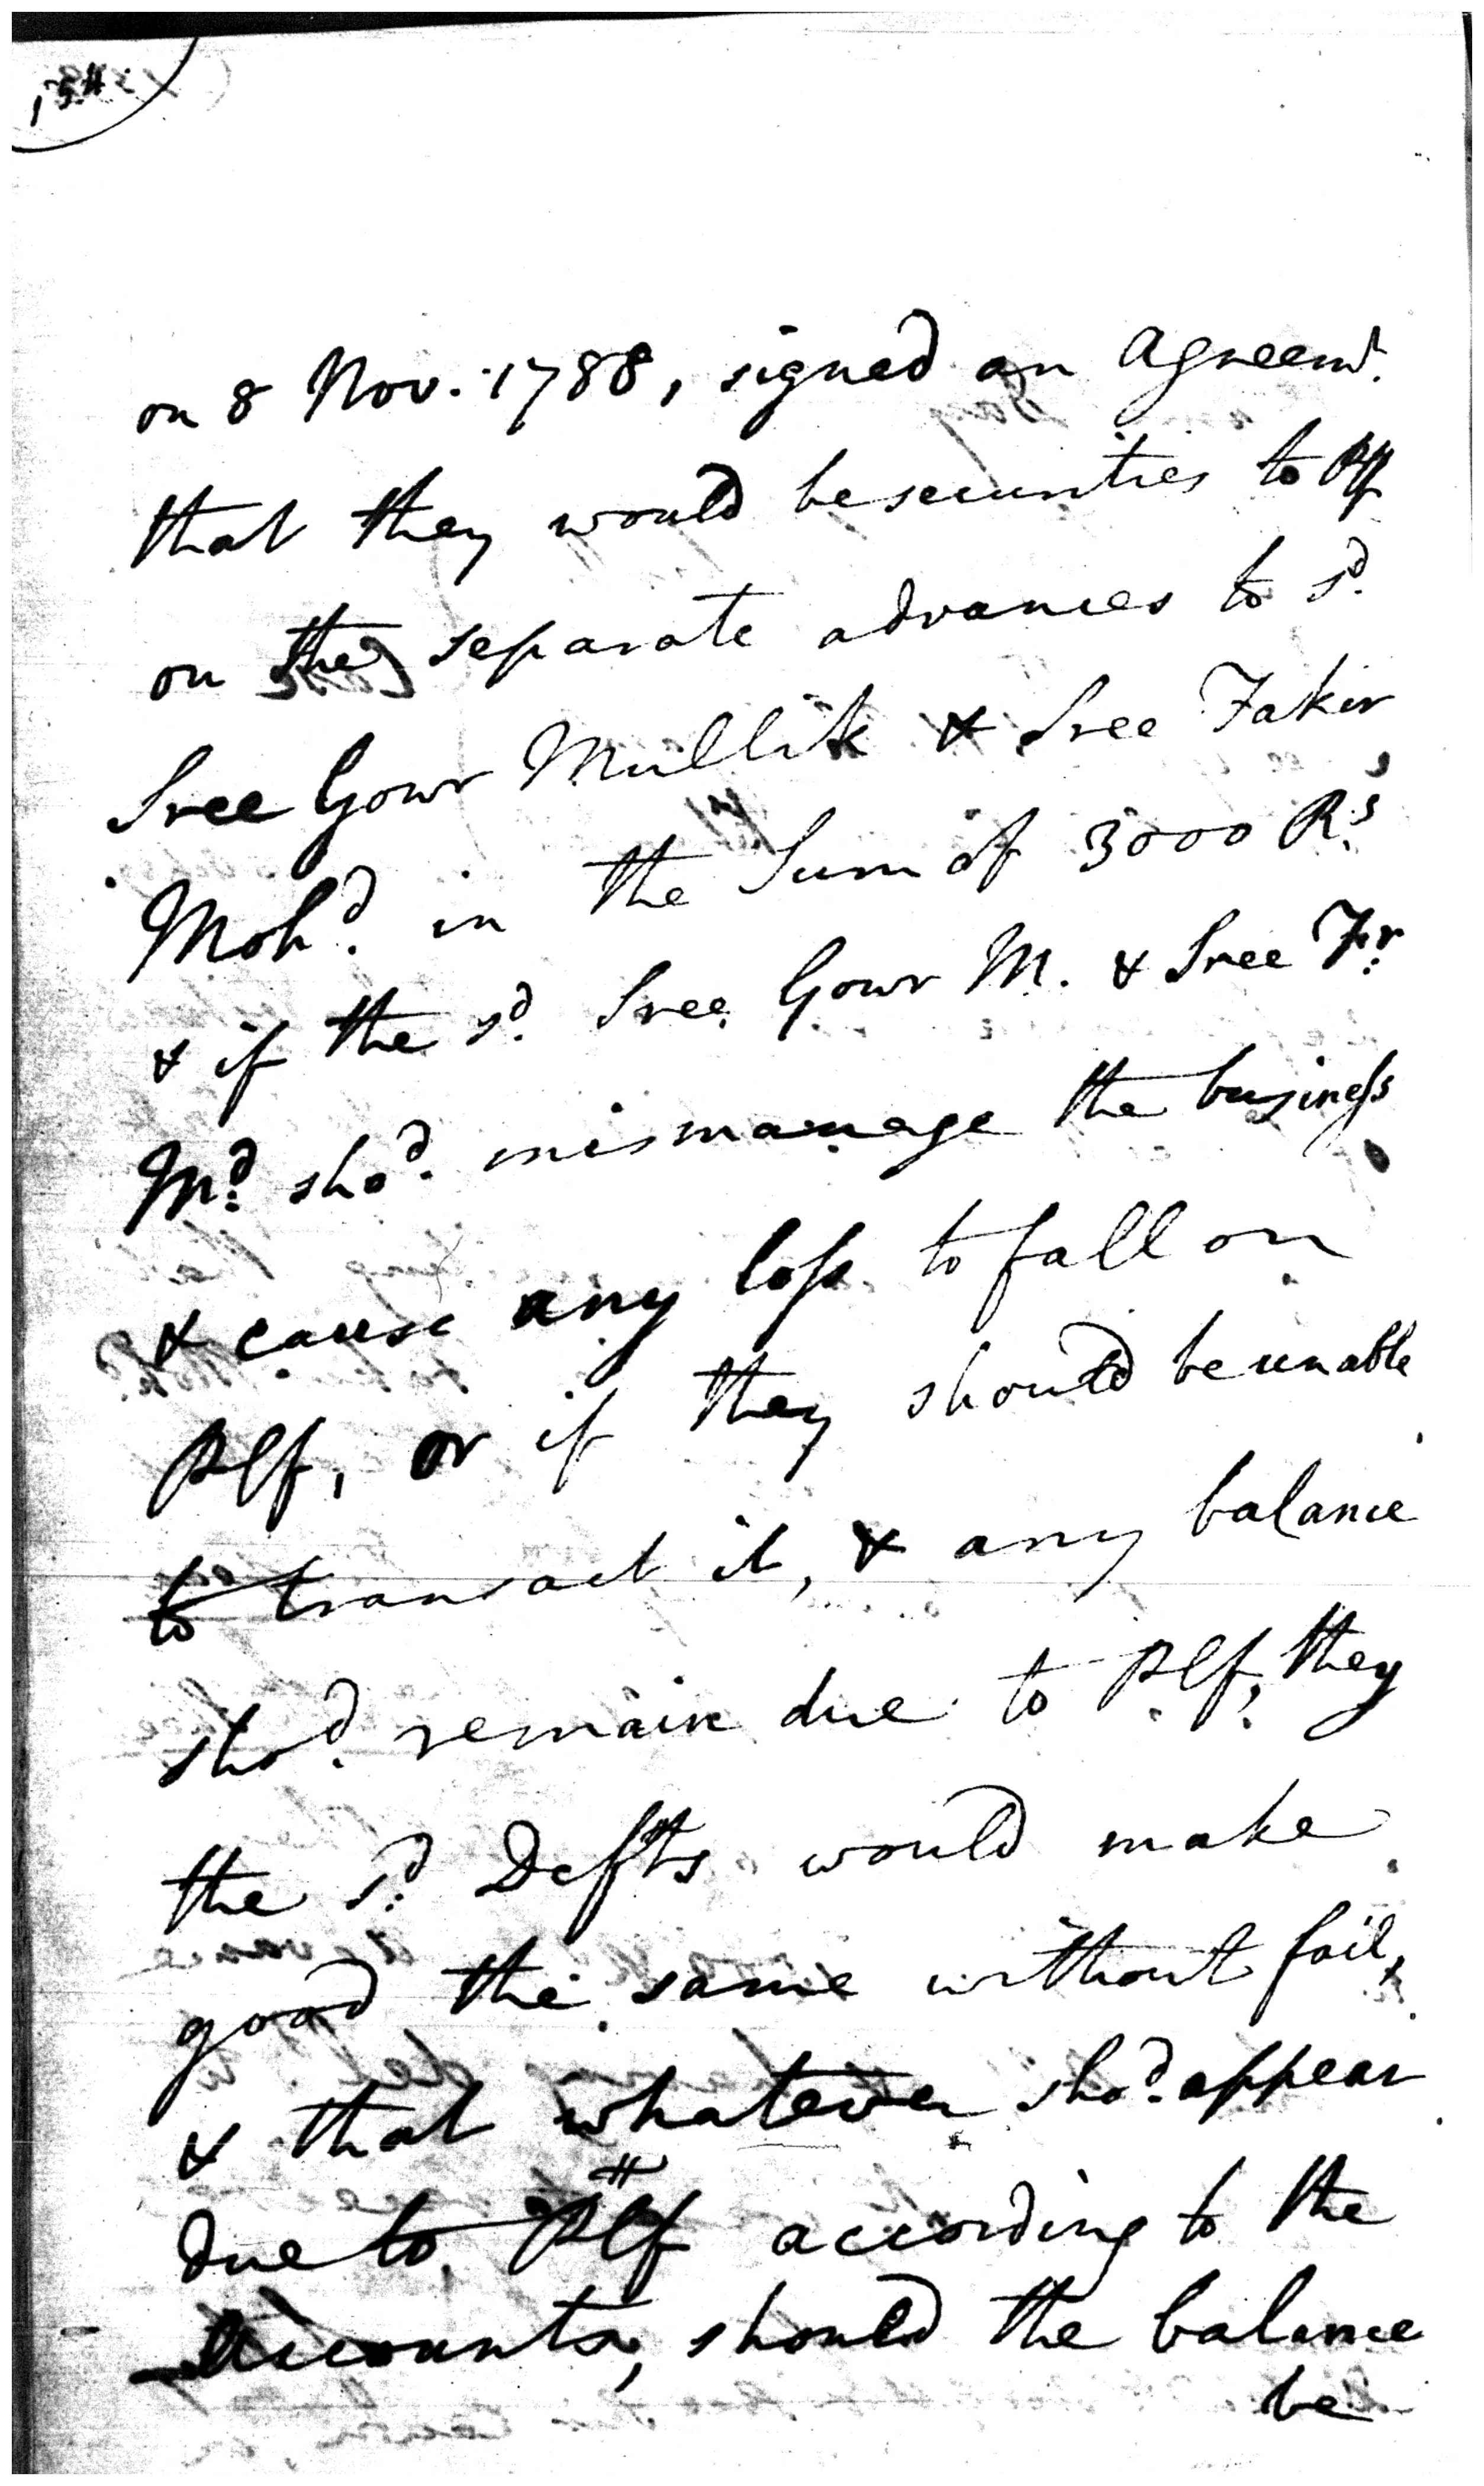 on 8 Nov. 1788, signed an Agreemt.
that they would be securities to Plf
on the separate advances to sd.
Sree Gowr Mullik & Sree Fakir
Mohd. in the Sum of 3000 Rs,
& if the sd. Sree Gowr M. & Sree Fr.
Md. shod. mismanage the business
& cause any loss to fall on
Plf, or if they should be unable
to transact it, & any balance
shod. remain due to Plf, they
the sd. Defts would make
good the same without fail,
& that whatever shod. appear
due to Plff according to the
Accounts, should the balance
be